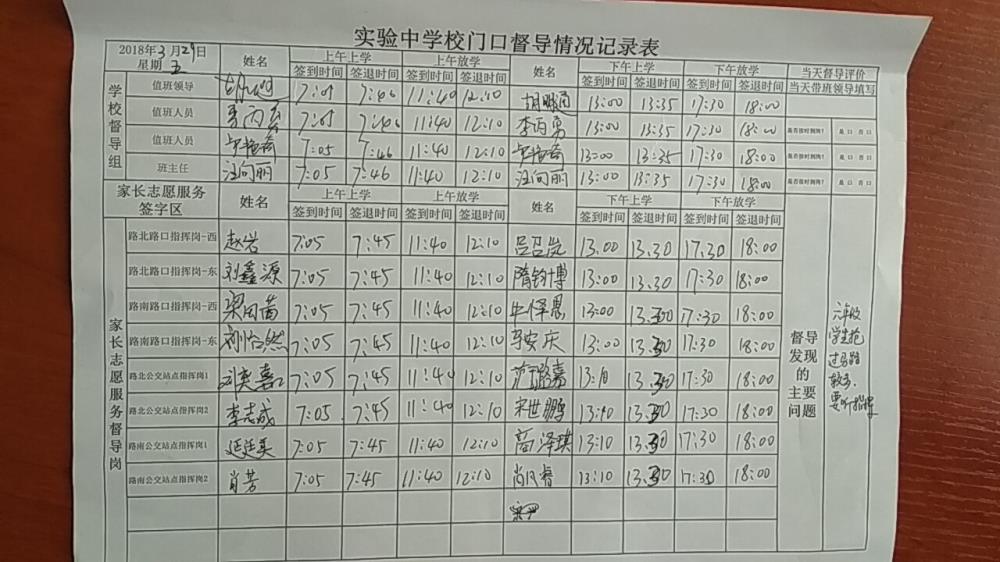 实验中学校门口督导情况记录表
2018年3月29日 星期五 姓名 上午上学 上午放学 姓名 下午上学 下午放学 当天督导评价
签到时间 签退时间 签到时间 签退时间 签到时间 签退时间 签到时间 签退时间 当天带班领导填写
学校督导组
值班领导 7:01 7:46 11:40 12:10 13:00 13:35 17:30 18:00
值班人员 7:01 7:46 11:40 12:10 李丙勇 13:00 13:35 17:30 18:00 是否按时到岗? 是口 否口
值班人员 7:05 7:46 11:40 12:10 13:00 13:35 17:30 18:00 是否按时到岗? 是口 否口
班主任 汪向丽 7:05 7:46 11:40 12:10 汪向丽 13:00 13:35 17:30 18:00 是否按时到岗? 是口 否口
家长志愿服务签字区 姓名 上午上学 上午放学 姓名 下午上学 下午放学
签到时间 签退时间 签到时间 签退时间 签到时间 签退时间 签到时间 签退时间
家长志愿服务督导岗
路北路口指挥岗-西 赵岩 7:05 7:45 11:40 12:10 吕召岚 13:00 13:30 17:30 18:00
路北路口指挥岗-东 刘鑫源 7:05 7:45 11:40 12:10 隋钧博 13:00 13:30 17:30 18:00
路南路口指挥岗-西 7:05 7:45 11:40 12:10 13:00 13:30 17:30 18:00
路南路口指挥岗-东 7:05 7:45 11:40 12:10 马安庆 13:00 13:30 17:30 18:00
路北公交站点指挥岗1 刘奕嘉 7:05 7:45 11:40 12:10 13:10 13:30 17:30 18:00
路北公交站点指挥岗2 李志成 7:05 7:45 11:40 12:10 宋世鹏 13:10 13:30 17:30 18:00
路南公交站点指挥岗1 7:05 7:45 11:40 12:10 高泽琪 13:10 13:30 17:30 18:00
路南公交站点指挥岗2 肖芳 7:05 7:45 11:40 12:10 13:10 13:30 17:30 18:00
督导发现的主要问题
学生抢
过马路
较多,
要听指挥